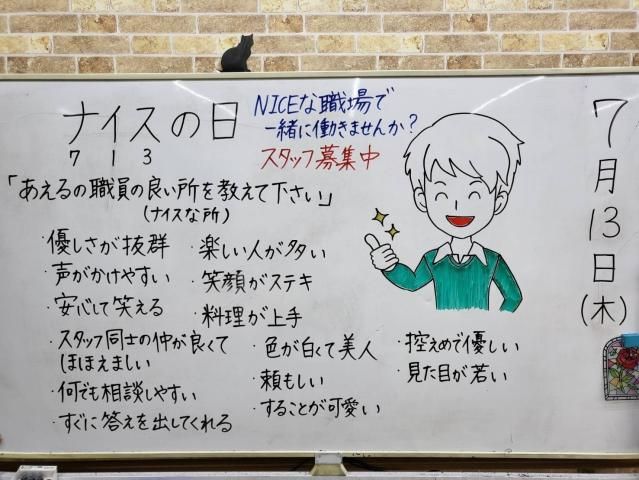 ナイスの日
7 1 3
NICEな職場で
一緒に働きませんか?
スタッフ募集中
7月13日(木)
「あえるの職員の良い所を教えて下さい」
(ナイスな所)
・優しさが抜群
・声がかけやすい
・安心して笑える
・スタッフ同士の仲が良くて
ほほえましい
・何でも相談しやすい
・すぐに答えを出してくれる
・楽しい人が多い
・笑顔がステキ
・料理が上手
・色が白くて美人
・頼もしい
・することが可愛い
・控えめで優しい
・見た目が若い